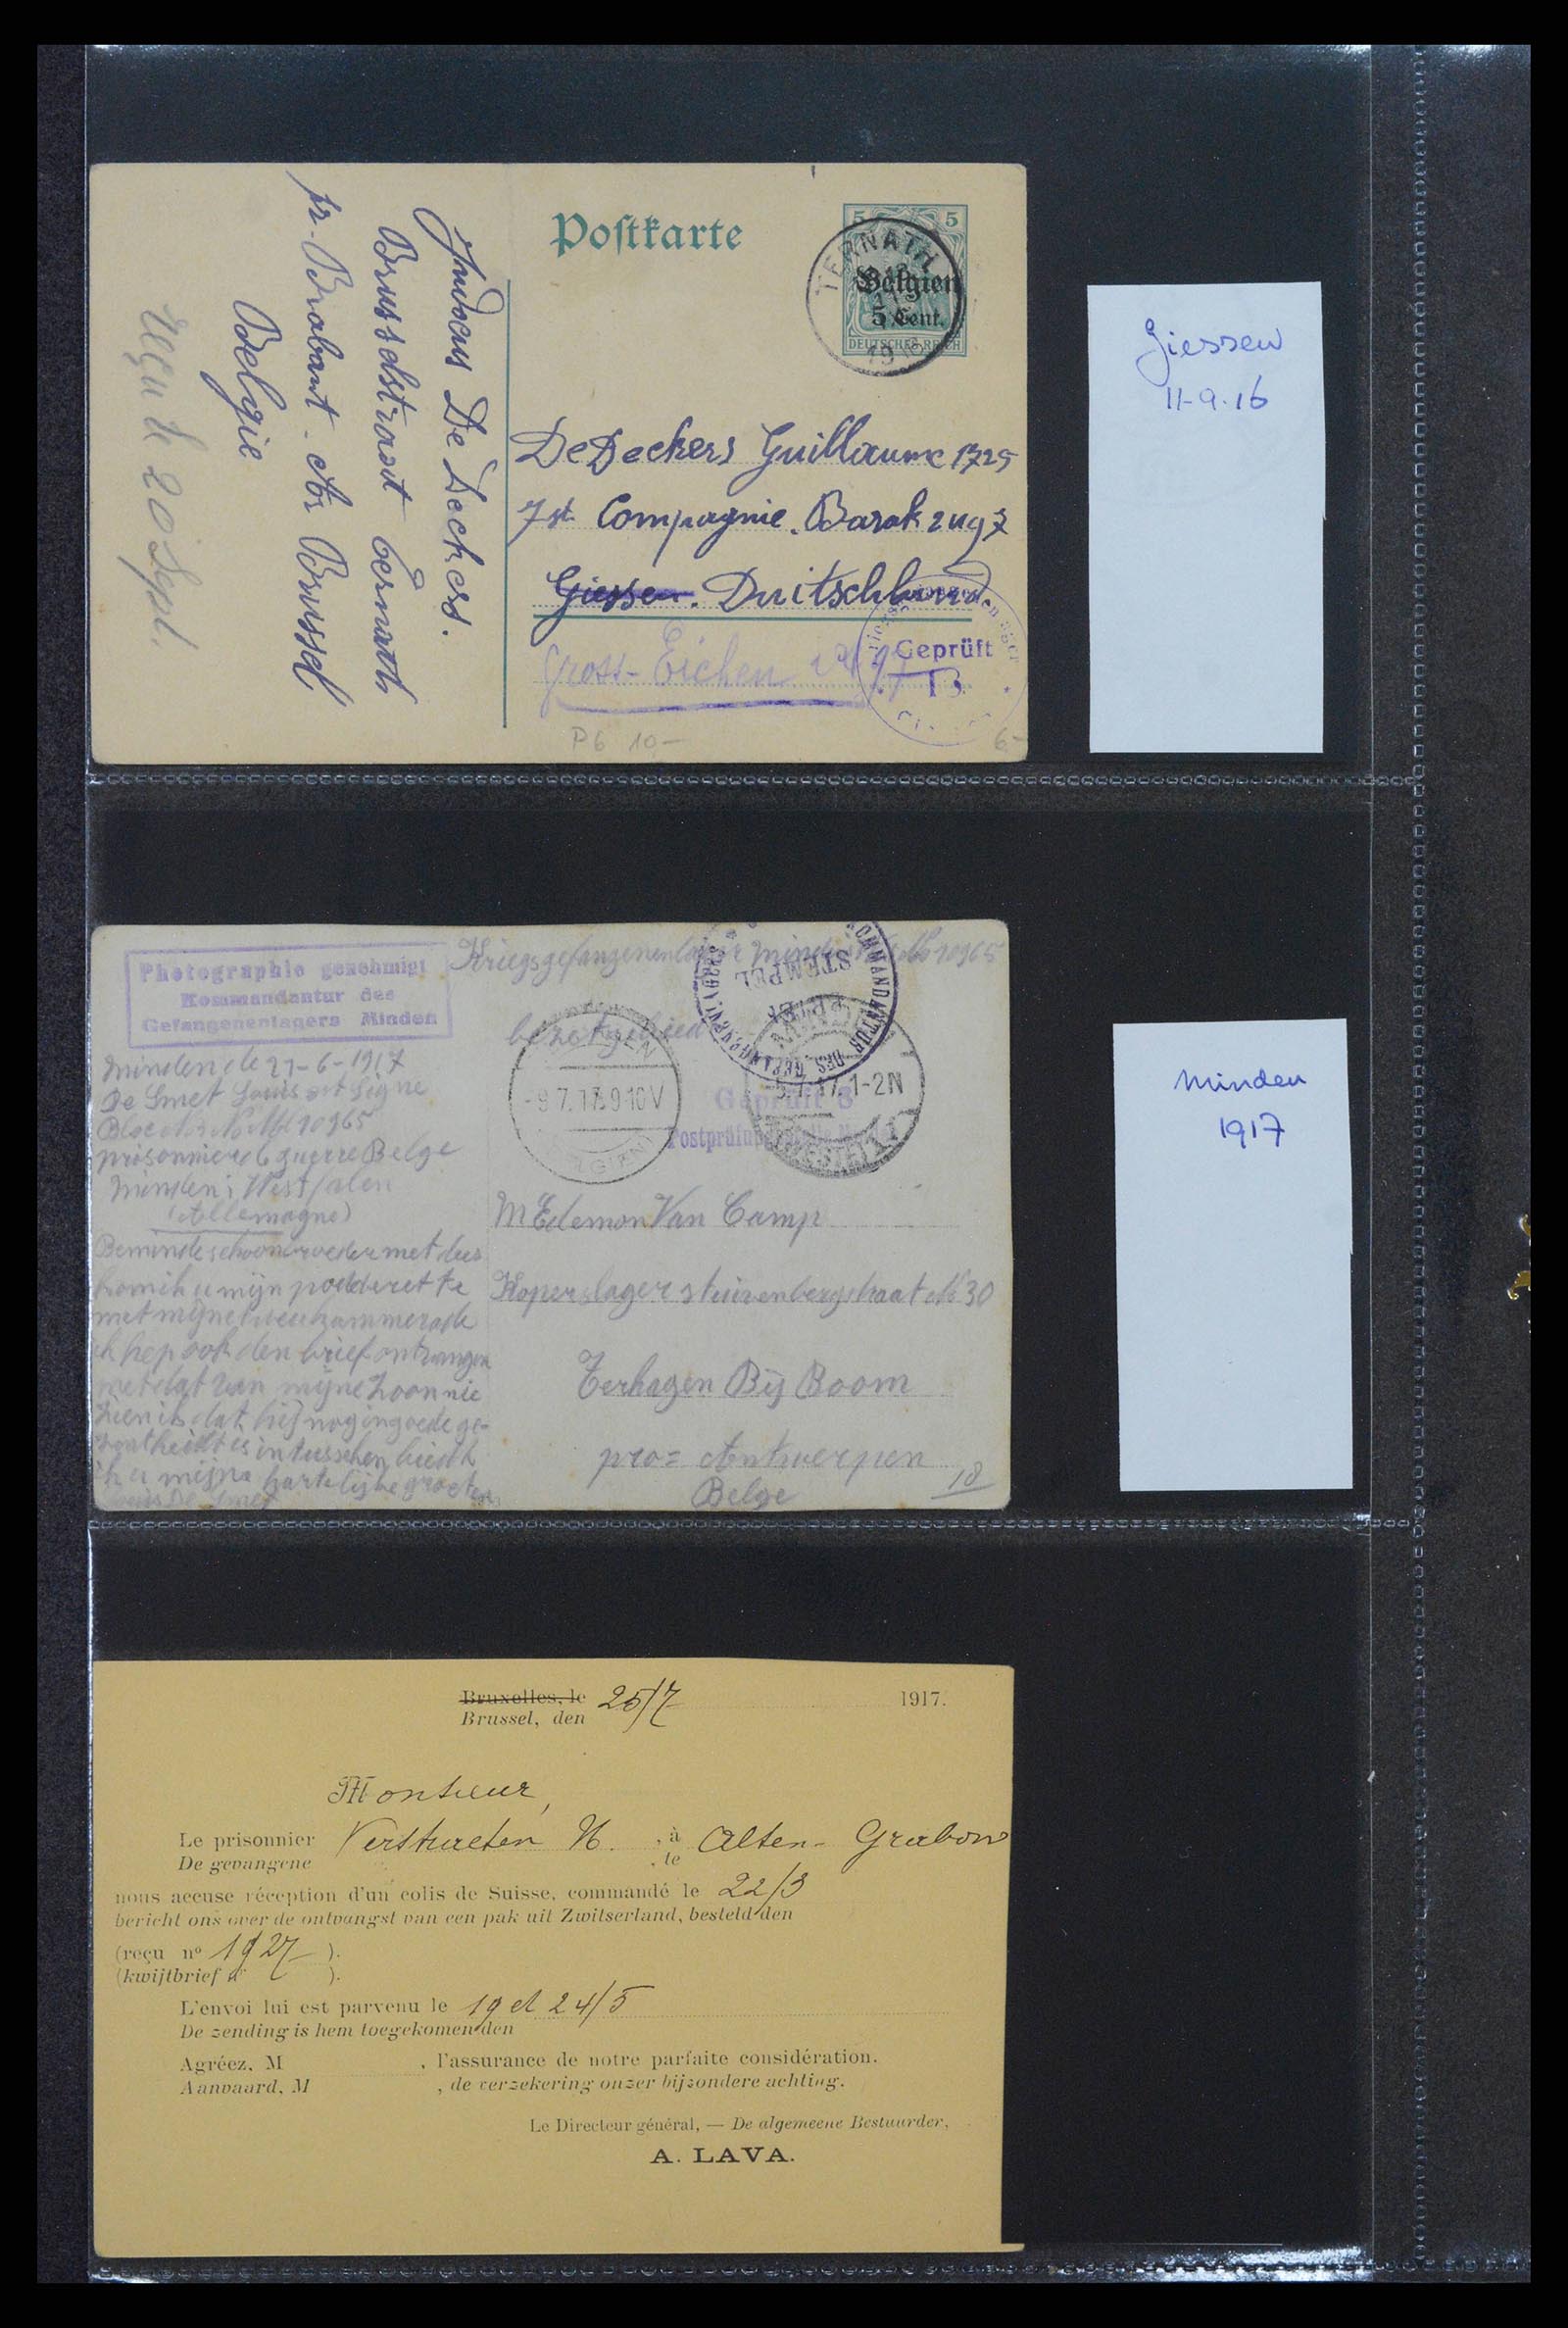 Postkarte
5 5
TERNATH
Belgien
5 Cent.
DEUTSCHES REICH
De Deckers Guillaume 1725
7de Compagnie. Barak zug 7
Giessen. Duitschland.
Gross-Eichen
Geprüft
13
P6 10,-
6,-
De Deckers.
Brusselstraat Ternath
pr. Brabant. Brussel
Belgie
Reçu le 20 Sept.
Giessen
11-9-16
Photographie genehmigt
Kommandantur des
Gefangenenlagers Minden
Kriegsgefangenenlager Minden 10965
KOMMANDANTUR DES GEFANGENENLAGERS
STEMPEL
- 9 7.17. 9-10V
1-2N
Geprüft 8
Minden le 21-6-1917
De Smet Louis
10965
prisonnier de guerre Belge
Minden i Westfalen
(Allemagne)
Beminde schoonbroeder met dees
kom ik u mijn
met mijne twee kammerade
ik hep ook den brief ontvangen
met dat van mijne zoon
zien ik dat hij nog in goede ge-
is intusschen biedt
ik u mijne hartelijke groeten
M Edemon Van Camp
Koperslager steivenbergstraat No 30
Terhagen Bij Boom
pro= Antwerpen
Belge
18
Minden
1917
Bruxelles, le
Brussel, den 25/7 1917.
Monsieur,
Le prisonnier Verstraeten H. , à Alten-Grabow
De gevangene , te
nous accuse réception d'un colis de Suisse, commandé le 22/3
bericht ons over de ontvangst van een pak uit Zwitserland, besteld den
(reçu nº 1927 ).
(kwijtbrief nr ).
L'envoi lui est parvenu le 19 et 24/5
De zending is hem toegekomen den
Agréez, M , l'assurance de notre parfaite considération.
Aanvaard, M , de verzekering onzer bijzondere achting.
Le Directeur général, — De algemeene Bestuurder,
A. LAVA.